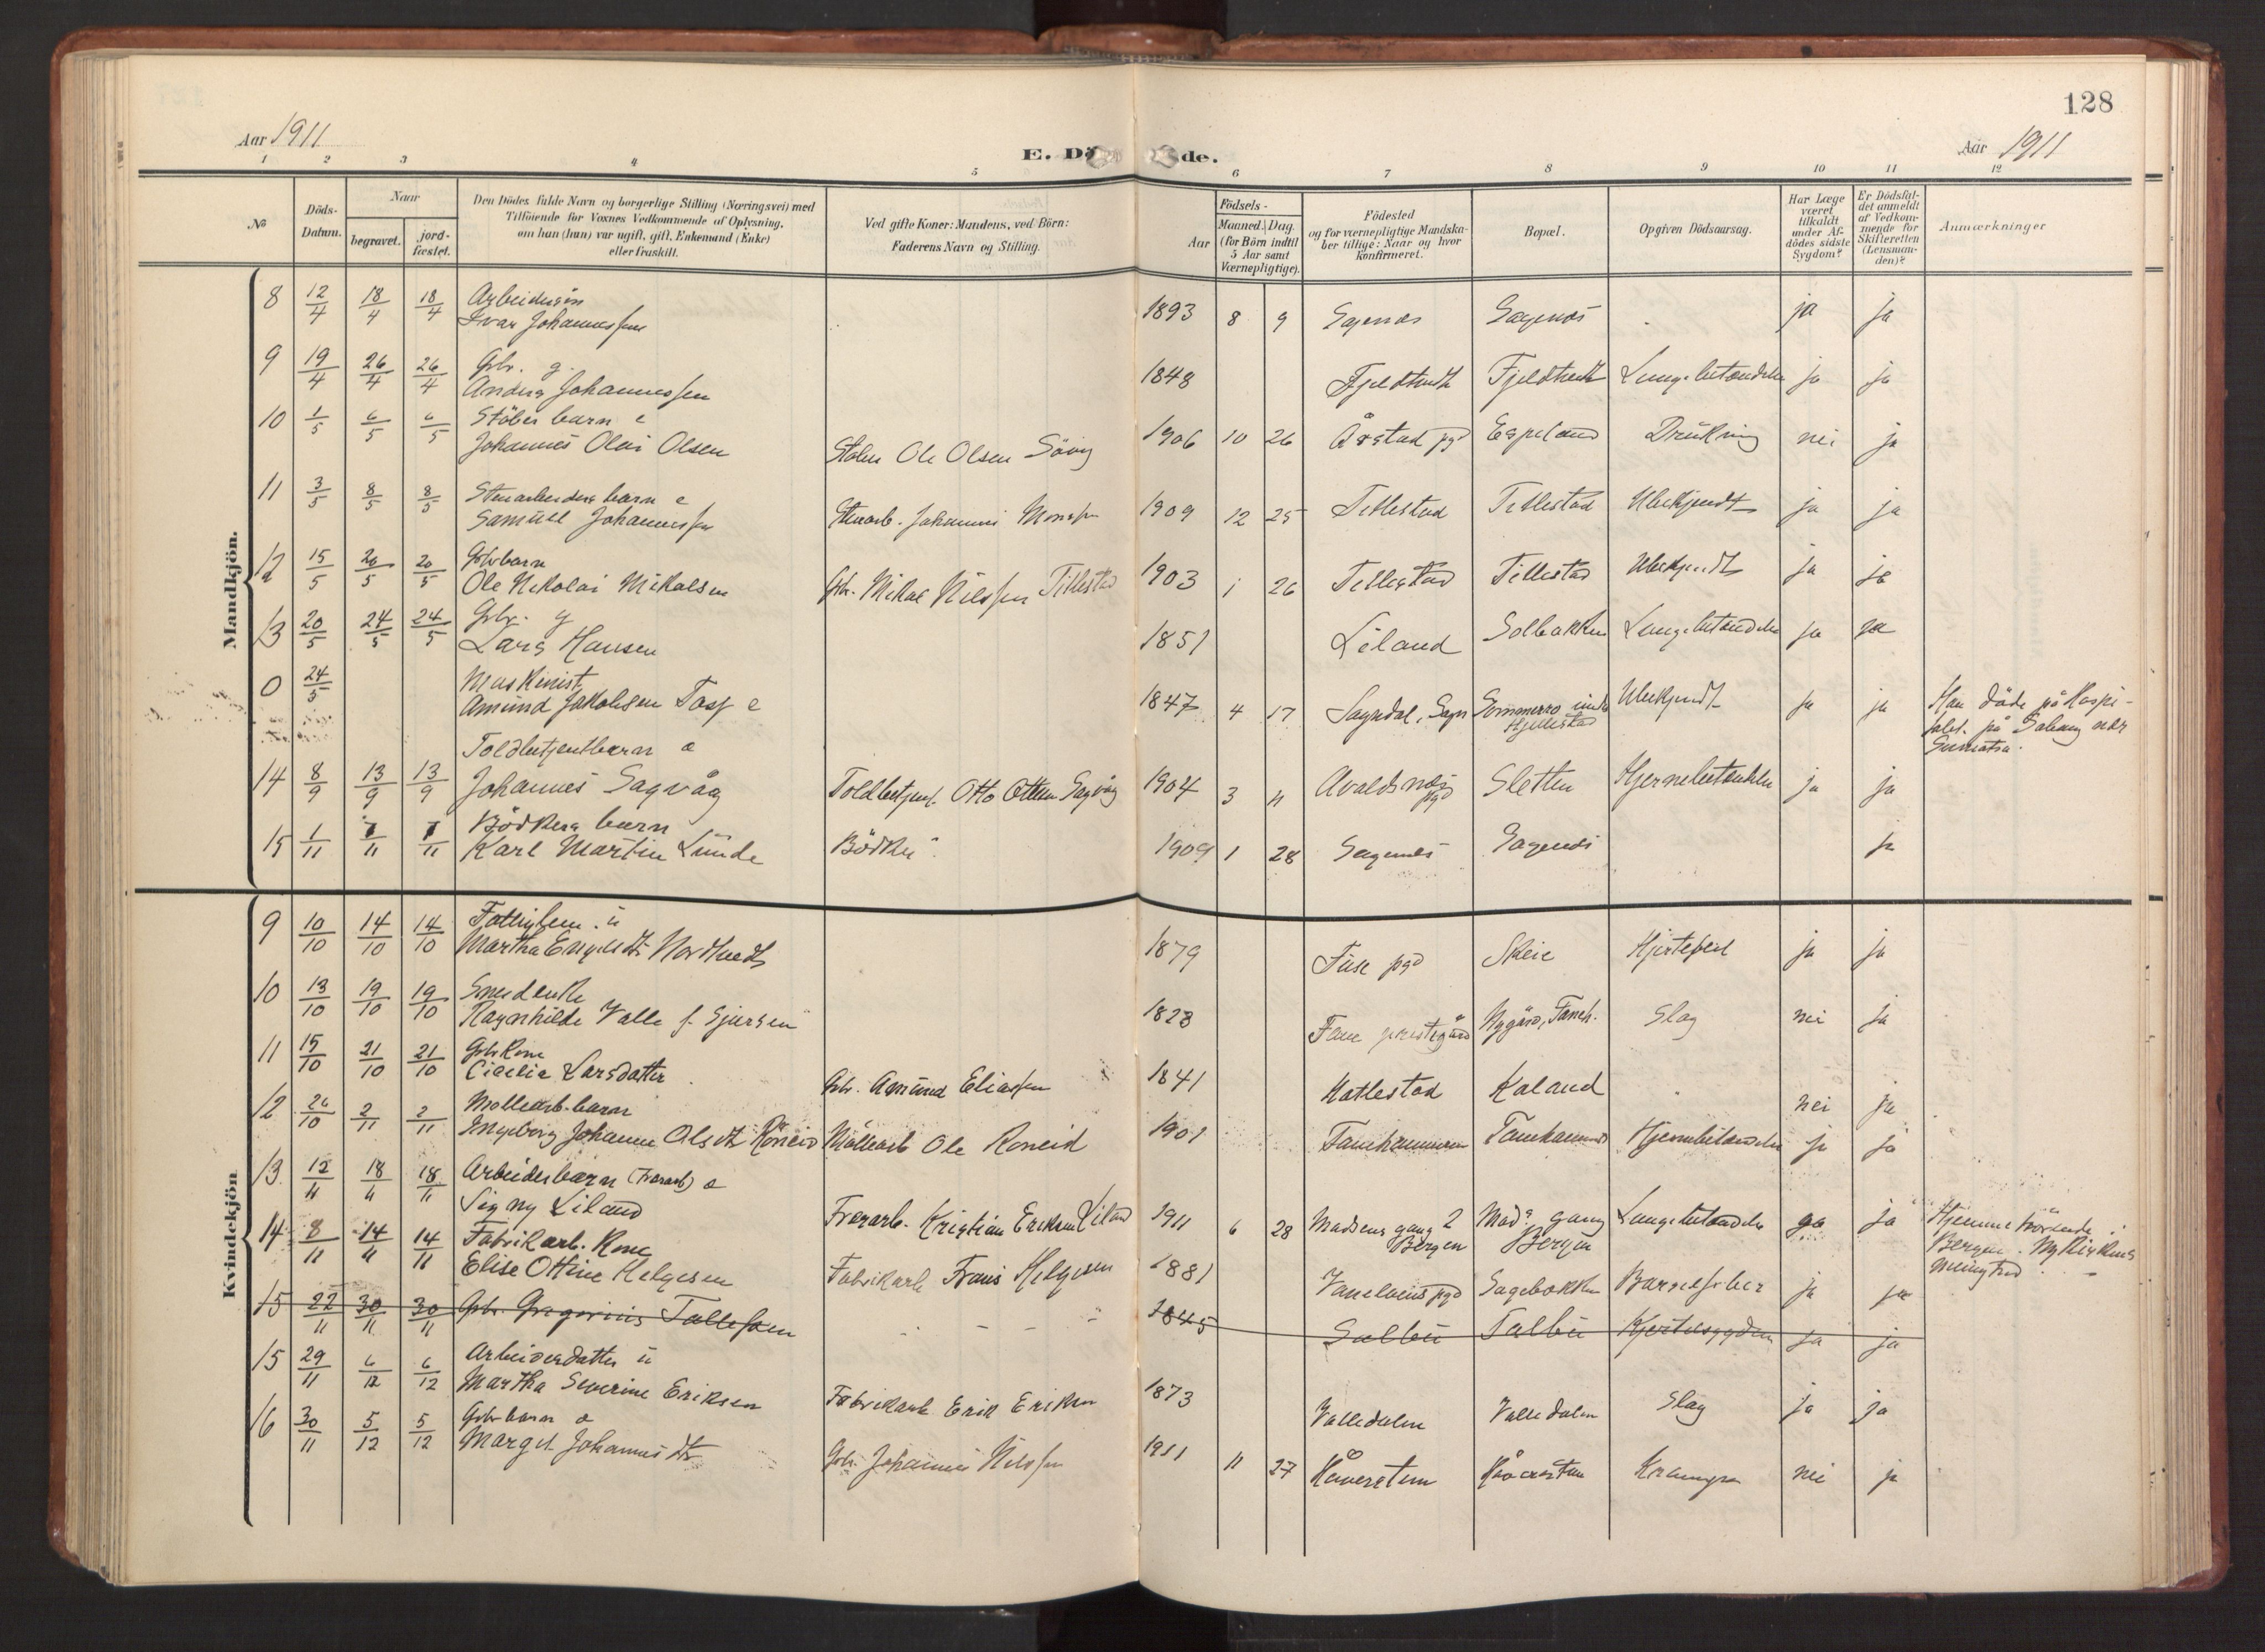 128
Aar 1911
E. Dö de.
Aar 1911
1 2 3 4 5 6 7 8 9 10 11 12
No
Döds-Datum.
Naar
begravet.
jord-fæstet.
Den Dödes fulde Navn og borgerlige Stilling (Næringsvei) med
Tilföiende for Voxnes Vedkommende af Oplysning,
om han (hun) var ugift, gift, Enkemand (Enke)
eller fraskilt.
Ved gifte Koner: Mandens, ved Börn:
Faderens Navn og Stilling.
Födsels-
Aar
Maaned. Dag.
(for Börn indtil
5 Aar samt
Værnepligtige).
Födested
og for værnepligtige Mandska-
ber tillige: Naar og hvor
konfirmeret.
Bopæl.
Opgiven Dödsaarsag.
Har Læge
været
tilkaldt
under Af-
dödes sidste
Sygdom?
Er Dödsfal-
det anmeldt
af Vedkom-
mende for
Skifteretten
(Lensman-
den)?
Anmærkninger
Mandkjön.
8 12/4 18/4 18/4 Arbeidersön
Ivar Johannessen 1893 8 9 Sagenes Sagenes ja ja
9 19/4 26/4 26/4 Gbr. g.
Anders Johannessen 1848 Fjeldtvedt Fjeldtvedt Lungebetændelse ja ja
10 1/5 6/5 6/5 Stöbers barn e
Johannes Olai Olsen Stöber Ole Olsen Sövig 1906 10 26 Årstad pgd Espeland Drukning nei ja
11 3/5 8/5 8/5 Stenarbeiders barn e
Samuel Johannessen Stenarb. Johannes Monsen 1909 12 25 Titlestad Titlestad Ubekjendt ja ja
12 15/5 20/5 20/5 Gbrbarn
Ole Nikolai Mikalsen Gbr. Mikal Nilssen Titlestad 1903 1 26 Titlestad Titlestad Ubekjendt ja ja
13 20/5 24/5 24/5 Gbr. g
Lars Hansen 1851 Liland Solbakken Lungebetændelse ja ja
0 24/5 Maskinist
Amund Jakobsen Tasf e 1847 4 17 Sogndal, Sogn Sommerro under
Hjellestad Ubekjendt ja ja Han döde på Hospi-
talet på Sabang ved
Sumatra.
Toldbetjentbarn e
14 8/9 13/9 13/9 Johannes Sagvåg Toldbetjent. Otto Ottesen Sagvåg 1904 3 11 Avaldsnes
pgd Sletten Hjernebetændelse ja ja
15 1/11 7/11 7/11 Bödkers barn
Karl Martin Lunde Bödker 1909 1 28 Sagenes Sagenes ja
Kvindekjön
9 10/10 14/10 14/10 Fattiglem. u
Martha Engelsdtr Nordtvedt 1879 Fuse pgd Skeie Hjertefeil ja ja
10 13/10 19/10 19/10 Smedenke
Ragnhilde Valle f. Gjersen 1823 Fane prestegård Nygård, Faneh. Slag nei ja
11 15/10 21/10 21/10 Gbrkone
Cicelie Larsdatter Gbr. Amund Eliassen 1841 Hatlestad Kaland nei ja
12 26/10 2/11 2/11 Möllearb. barn
Ingeborg Johanne Olsdtr Röneid Möllearb Ole Roneid 1901 Fanehammeren Fanehammer Hjernebetændelse ja ja
13 12/11 18/11 18/11 Arbeiderbarn (Frærarb) e
Signy Liland Frærarb. Kristian Eriksen Liland 1911 6 28 Madsens gang 2
Bergen Mads. gang
Bergen Lungebetændelse ja ja Hjemmehörende i
Bergen. Nykirkens
menighed.
14 8/11 14/11 14/11 Fabrikarb. Kone
Elise Ottine Helgesen Fabrikarb Frans Helgesen 1881 Vanelvens pgd Sagebakken Barselfeber ja ja
15 22/11 30/11 30/11 Gbr Gregorius Tollefsen 1845 Salbu Salbu Hjertesygdom ja ja
15 29/11 6/12 6/12 Arbeiderdatter u
Martha Severine Eriksen Fabrikarb. Erik Eriksen 1873 Valledalen Valledalen Slag ja ja
16 30/11 5/12 5/12 Gbrbarn e
Marget Johannesdtr Gbr. Johannes Nilssen 1911 11 27 Håverstein Håverstein Krampe nei ja